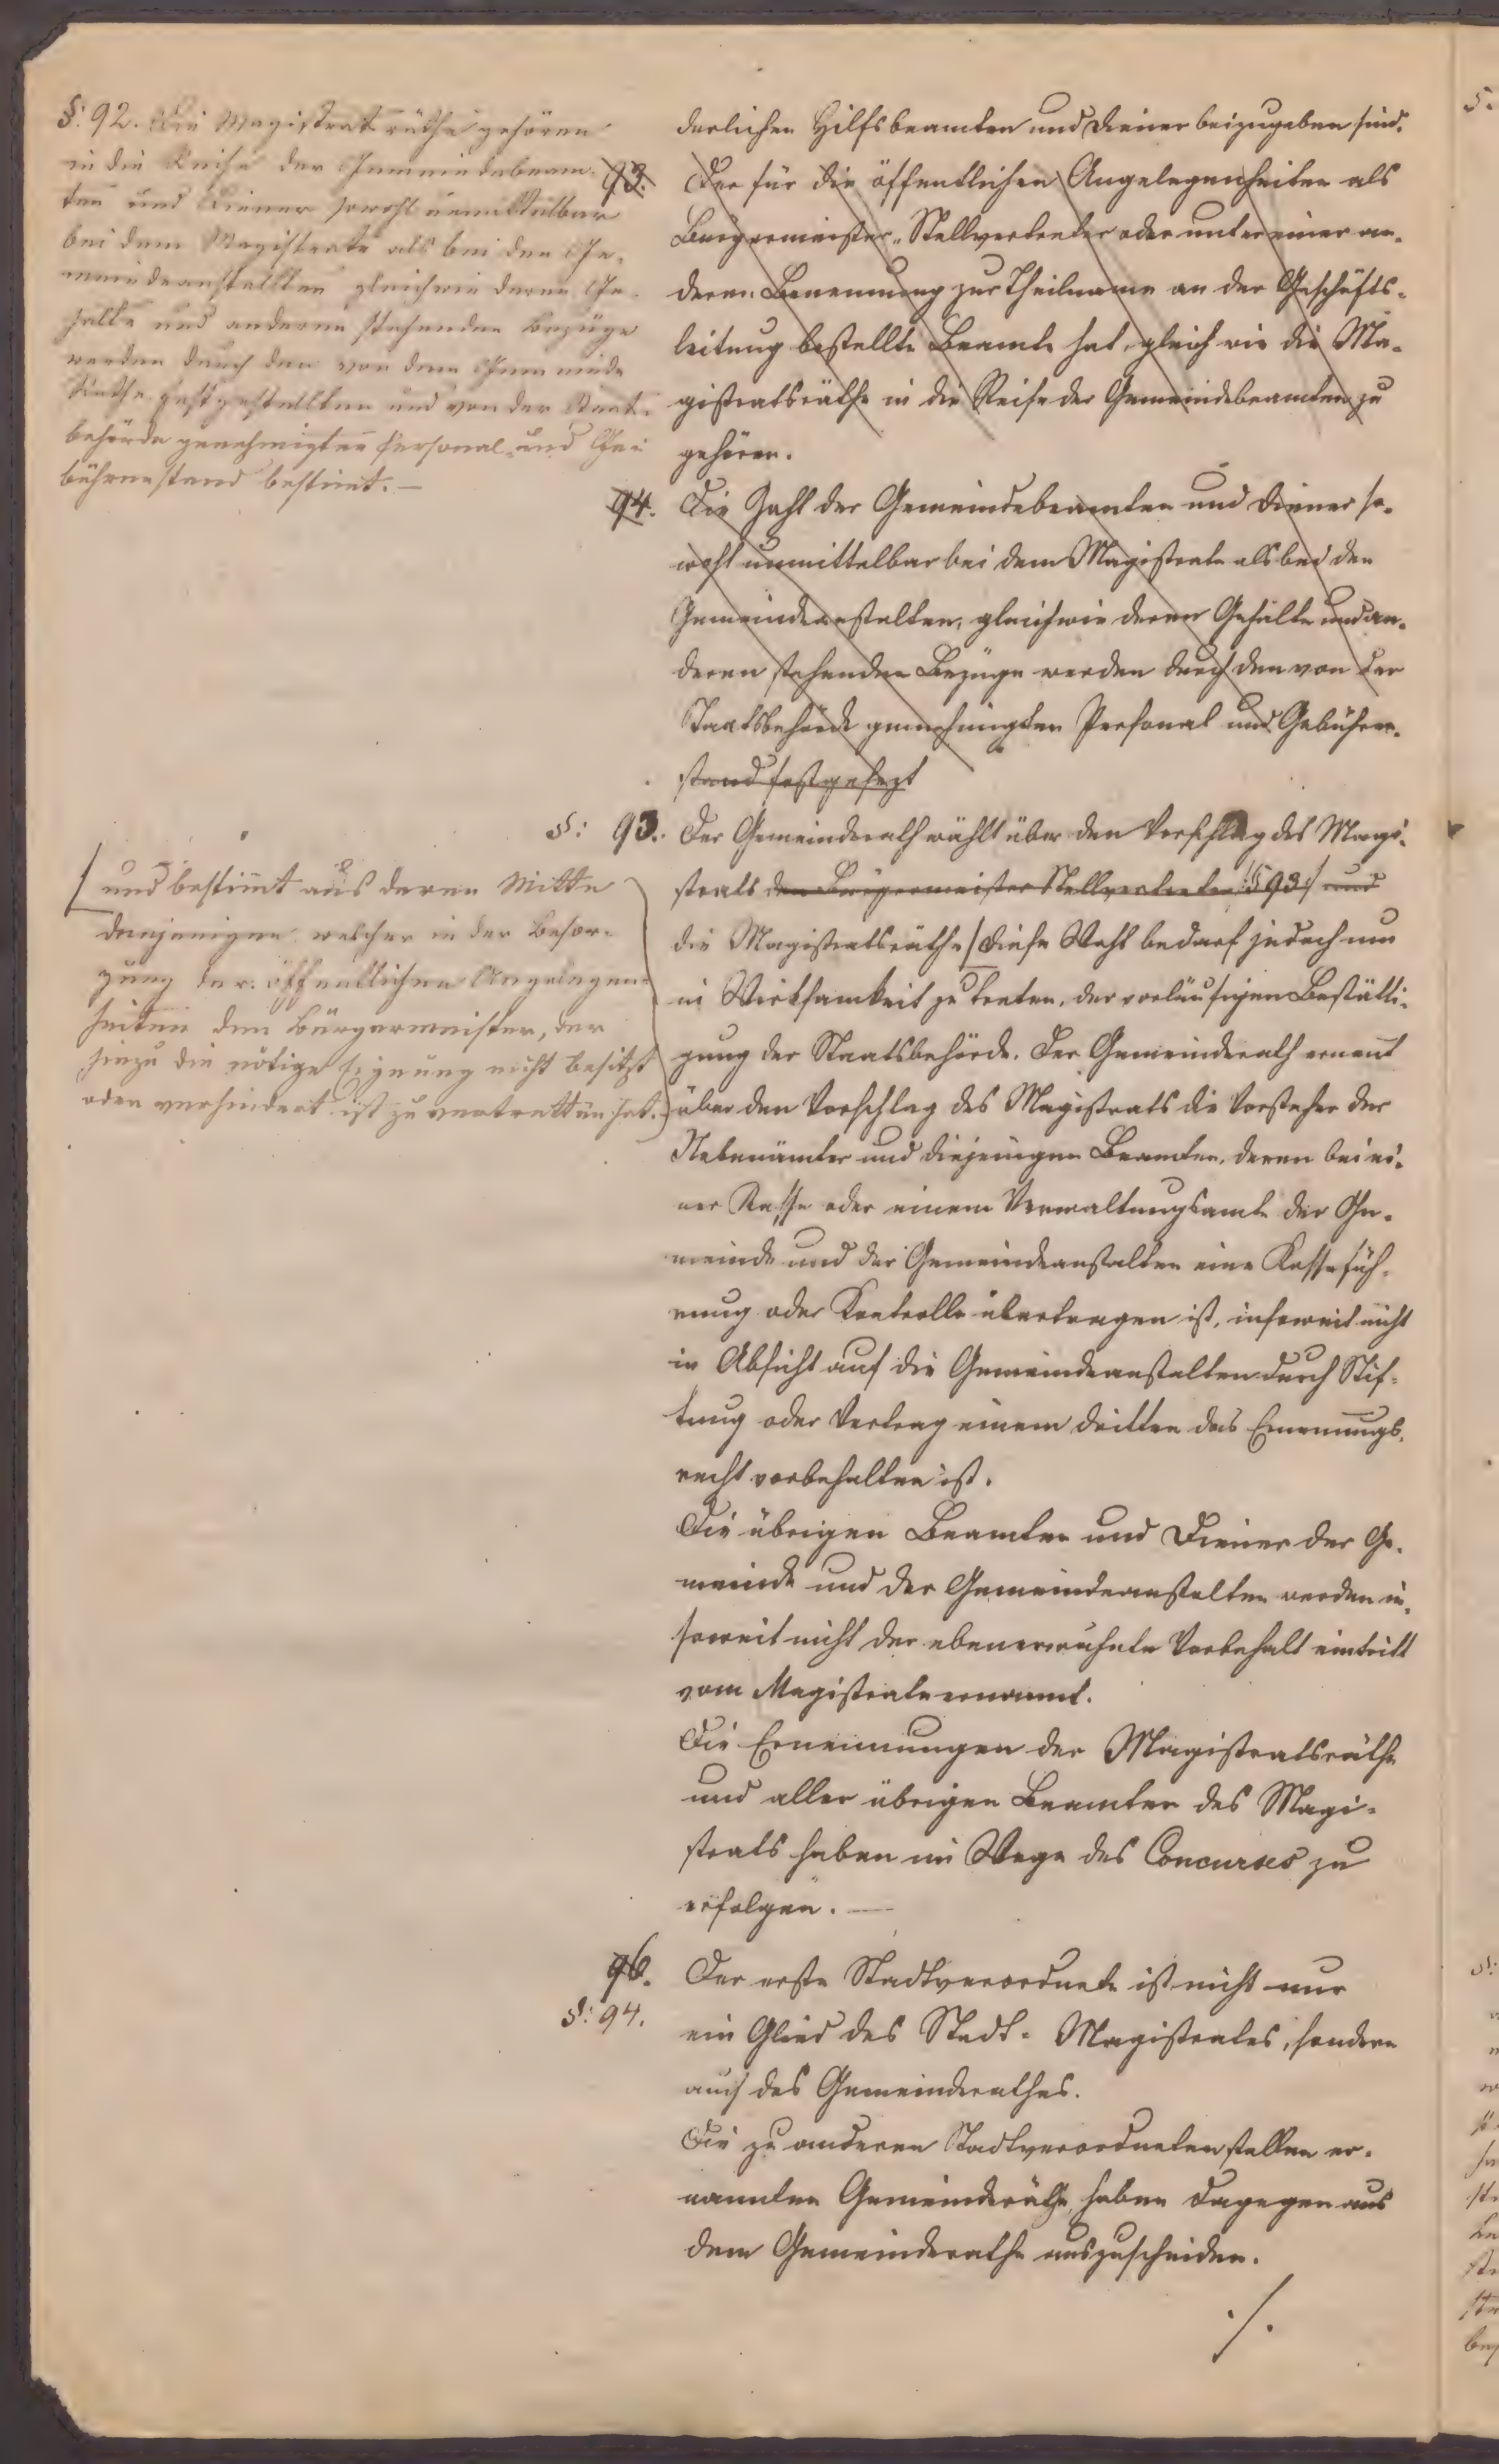 §: 92. Die Magistratsräthe gehören
in die Reihe der Gemeindebeam-
ten und Diener sowohl unmittelbar
bei dem Magistrate als bei den Ge-
meindeanstalten gleichwie deren Ge-
halte und anderen stehenden Bezüge
werden durch den von dem Gemeinde
Rathe festgestellten und von der Staats-
behörde genehmigten Personal- und Ge-
bührenstand bestimt. —
derlichen Hilfsbeamten und Diener beizugeben sind.
93. Der für die öffentlichen Angelegenheiten als
Bürgermeister-Stellvertreter oder unter einer an-
deren Benennung zur Theilname an der Geschäfts-
leitung bestellte Beamte hat, gleich wie die Ma-
gistratsräthe in die Reihe der Gemeindebeamten zu
gehören.
94. Die Zahl der Gemeindebeamten und Diener so-
wohl unmittelbar bei dem Magistrate als bei den
Gemeindeanstalten, gleichwie deren Gehalte und an-
deren stehenden Bezüge werden durch den von der
Staatsbehörde genehmigten Personal und Gebühren-
stand festgesezt
§: 93. Der Gemeinderath wählt über den Vorschlag des Magi-
strats den Bürgermeister Stellvertreter /:§ 93:/ und
die Magistratsräthe / Diese Wahl bedarf jedoch um
in Wirksamkeit zu treten, der vorläufigen Bestätti-
gung der Staatsbehörde. Der Gemeinderath ernent
über den Vorschlag des Magistrats die Vorsteher der
Nebenämter und diejenigen Beamten, denen bei ei-
ner Kasse oder einem Verwaltungsamte der Ge-
meinde und der Gemeindeanstalten eine Kassefüh-
rung oder Kontrolle übertragen ist, insoweit nicht
in Absicht auf die Gemeindeanstalten durch Stif-
tung oder Vertrag einem dritten das Ernennungs-
recht vorbehalten ist.
/ und bestimt aus deren Mitte
denjenigen welcher in der Besor-
gung der öffentlichen Angelegen-
heiten den Bürgermeister, der
hiezu die nötige Eignung nicht besitzt
oder verhindert ist zu vertretten hat.
Die übrigen Beamten und Diener der Ge-
meinde und der Gemeindeanstalten werden in-
soweit nicht der ebenerwähnte Vorbehalt eintritt
vom Magistrate ernannt.
Die Ernennungen der Magistratsräthe
und aller übrigen Beamten des Magi-
strats haben im Wege des Concurses zu
erfolgen. —
96. Der erste Stadtverordnete ist nicht nur
§: 94. ein Glied des Stadt-Magistrates, sondern
auch des Gemeinderathes.
Die zu anderen Stadtverordnetenstellen er-
nannten Gemeinderäthe, haben dagegen aus
dem Gemeinderathe auszuscheiden.
./.